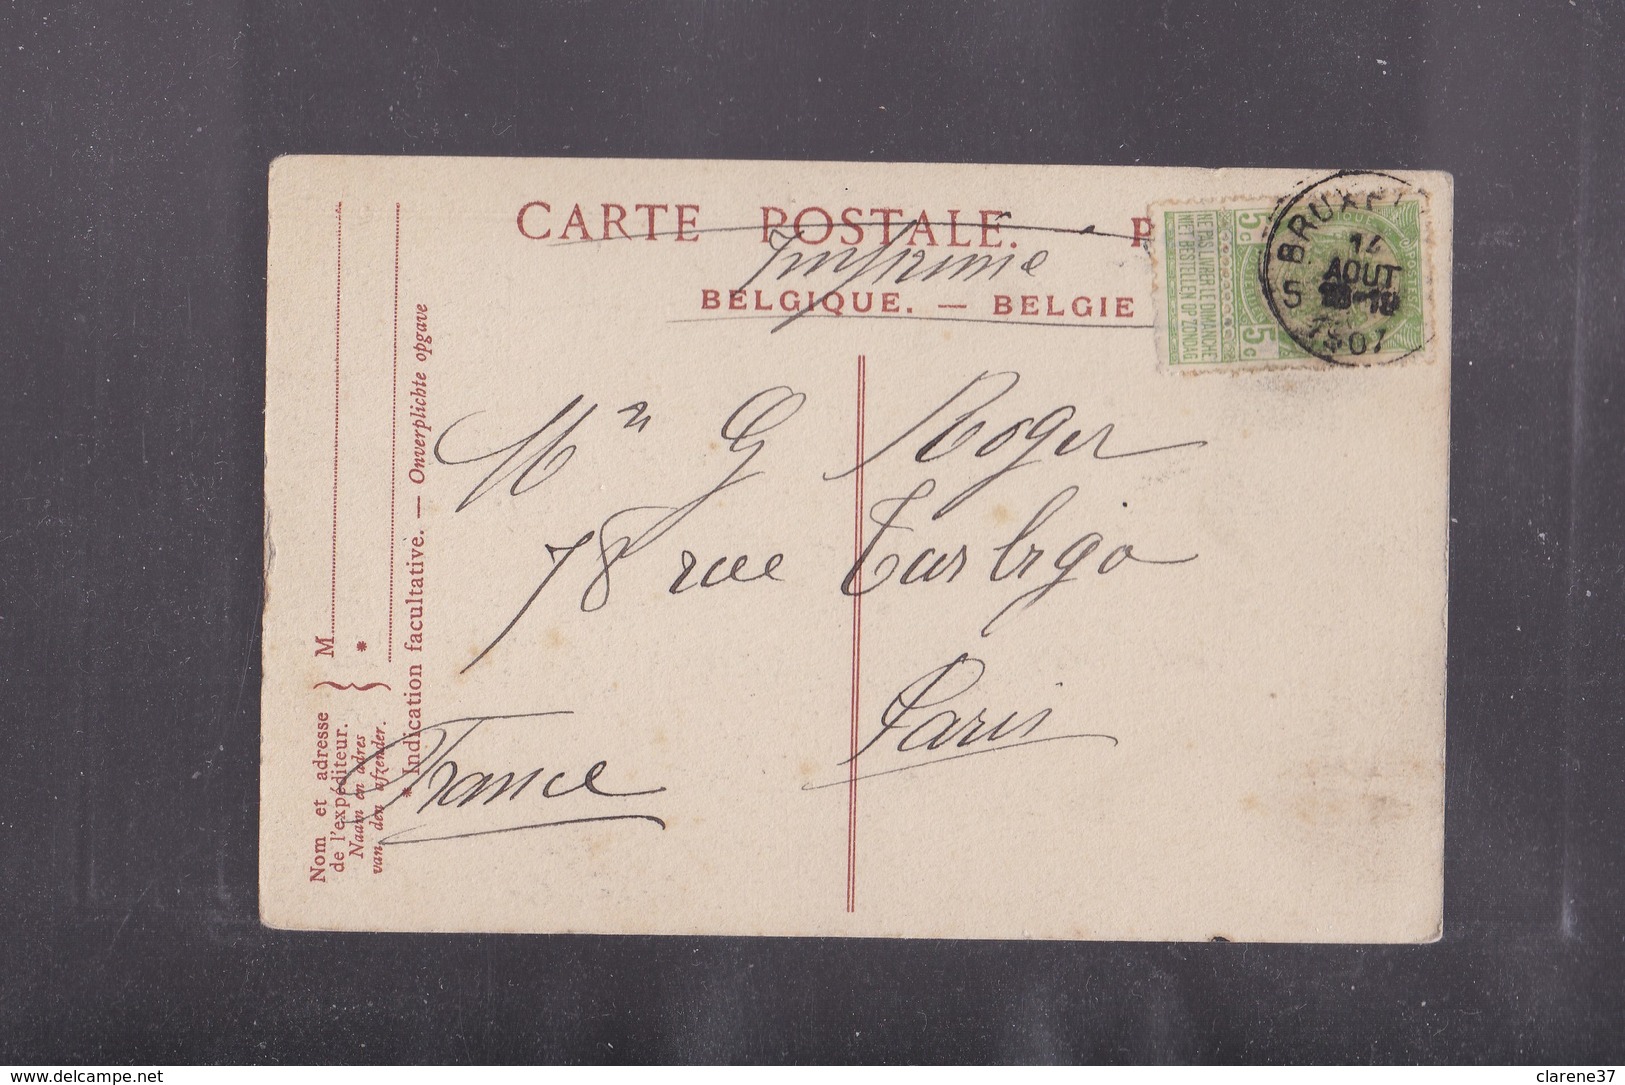 CARTE POSTALE.
Imprimé
BELGIQUE. — BELGIE
NE PAS LIVRER LE DIMANCHE
NIET BESTELLEN OP ZONDAG
5c 5c
BRUXE
14
AOUT
1907
G Roger
78 rue Turbigo
Paris
France
Nom et adresse
de l'expéditeur.
Naam en adres
van den afzender.
M
*
* Indication facultative. — Onverplichte opgave
www.delcampe.net
clarene37